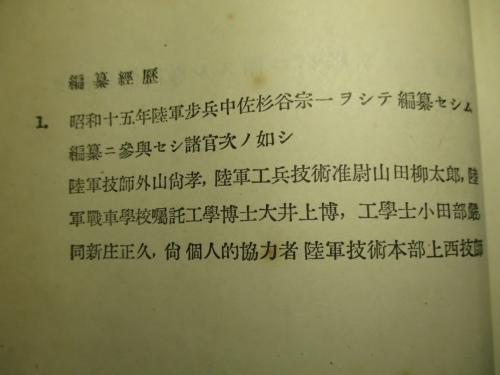 編纂經歷
1. 昭和十五年陸軍步兵中佐杉谷宗一ヲシテ編纂セシム
編纂ニ參與セシ諸官次ノ如シ
陸軍技師外山尙孝,陸軍工兵技術准尉山田柳太郞,陸
軍戰車學校囑託工學博士大井上博,工學士小田部
同新庄正久,尙個人的協力者陸軍技術本部上西技師